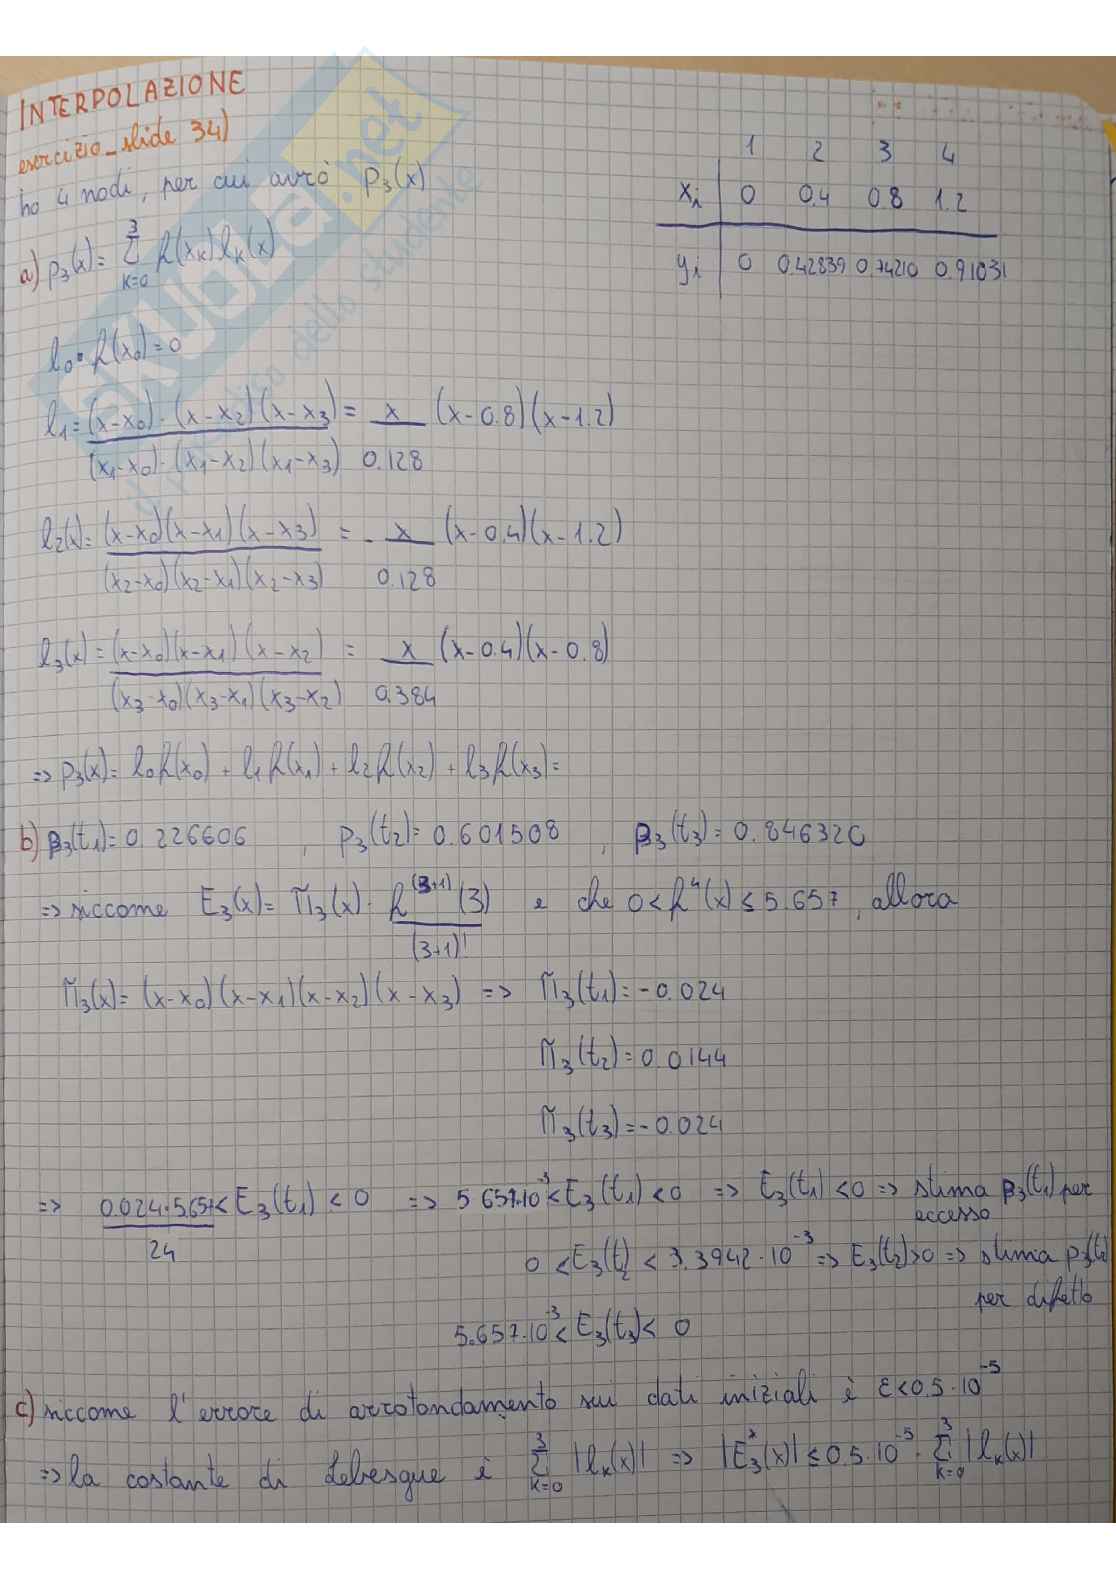 INTERPOLAZIONE
esercizio_slide 34)
ho 4 nodi, per cui avrò P3(x)
1 2 3 4
xi | 0 0.4 0.8 1.2
yi | 0 0.42839 0.74210 0.91031
a) p3(x) = Σ(k=0..3) f(xk) lk(x)
l0 · f(x0) = 0
l1 = (x-x0)·(x-x2)(x-x3) / (x1-x0)·(x1-x2)(x1-x3) = x/0.128 (x-0.8)(x-1.2)
l2(x) = (x-x0)(x-x1)(x-x3) / (x2-x0)(x2-x1)(x2-x3) = - x/0.128 (x-0.4)(x-1.2)
l3(x) = (x-x0)(x-x1)(x-x2) / (x3-x0)(x3-x1)(x3-x2) = x/0.384 (x-0.4)(x-0.8)
=> p3(x) = l0 f(x0) + l1 f(x1) + l2 f(x2) + l3 f(x3) =
b) p3(t1) = 0.226606 , p3(t2) = 0.601508 , p3(t3) = 0.846320
=> siccome E3(x) = π3(x) · f^(3+1)(3) / (3+1)! e che 0 < f^4(x) ≤ 5.657, allora
π3(x) = (x-x0)(x-x1)(x-x2)(x-x3) => π3(t1) = -0.024
π3(t2) = 0.0144
π3(t3) = -0.024
=> 0.024·5.657/24 < E3(t1) < 0 => 5.657·10^-3 < E3(t1) < 0 => E3(t1) < 0 => stima p3(t1) per
eccesso
0 < E3(t2) < 3.3942·10^-3 => E3(t2) > 0 => stima p3(t2)
per difetto
5.657·10^-3 < E3(t3) < 0
c) siccome l'errore di arrotondamento sui dati iniziali è ε < 0.5·10^-5
=> la costante di Lebesgue è Σ(k=0..3) |lk(x)| => |E3*(x)| ≤ 0.5·10^-5 · Σ(k=0..3) |lk(x)|